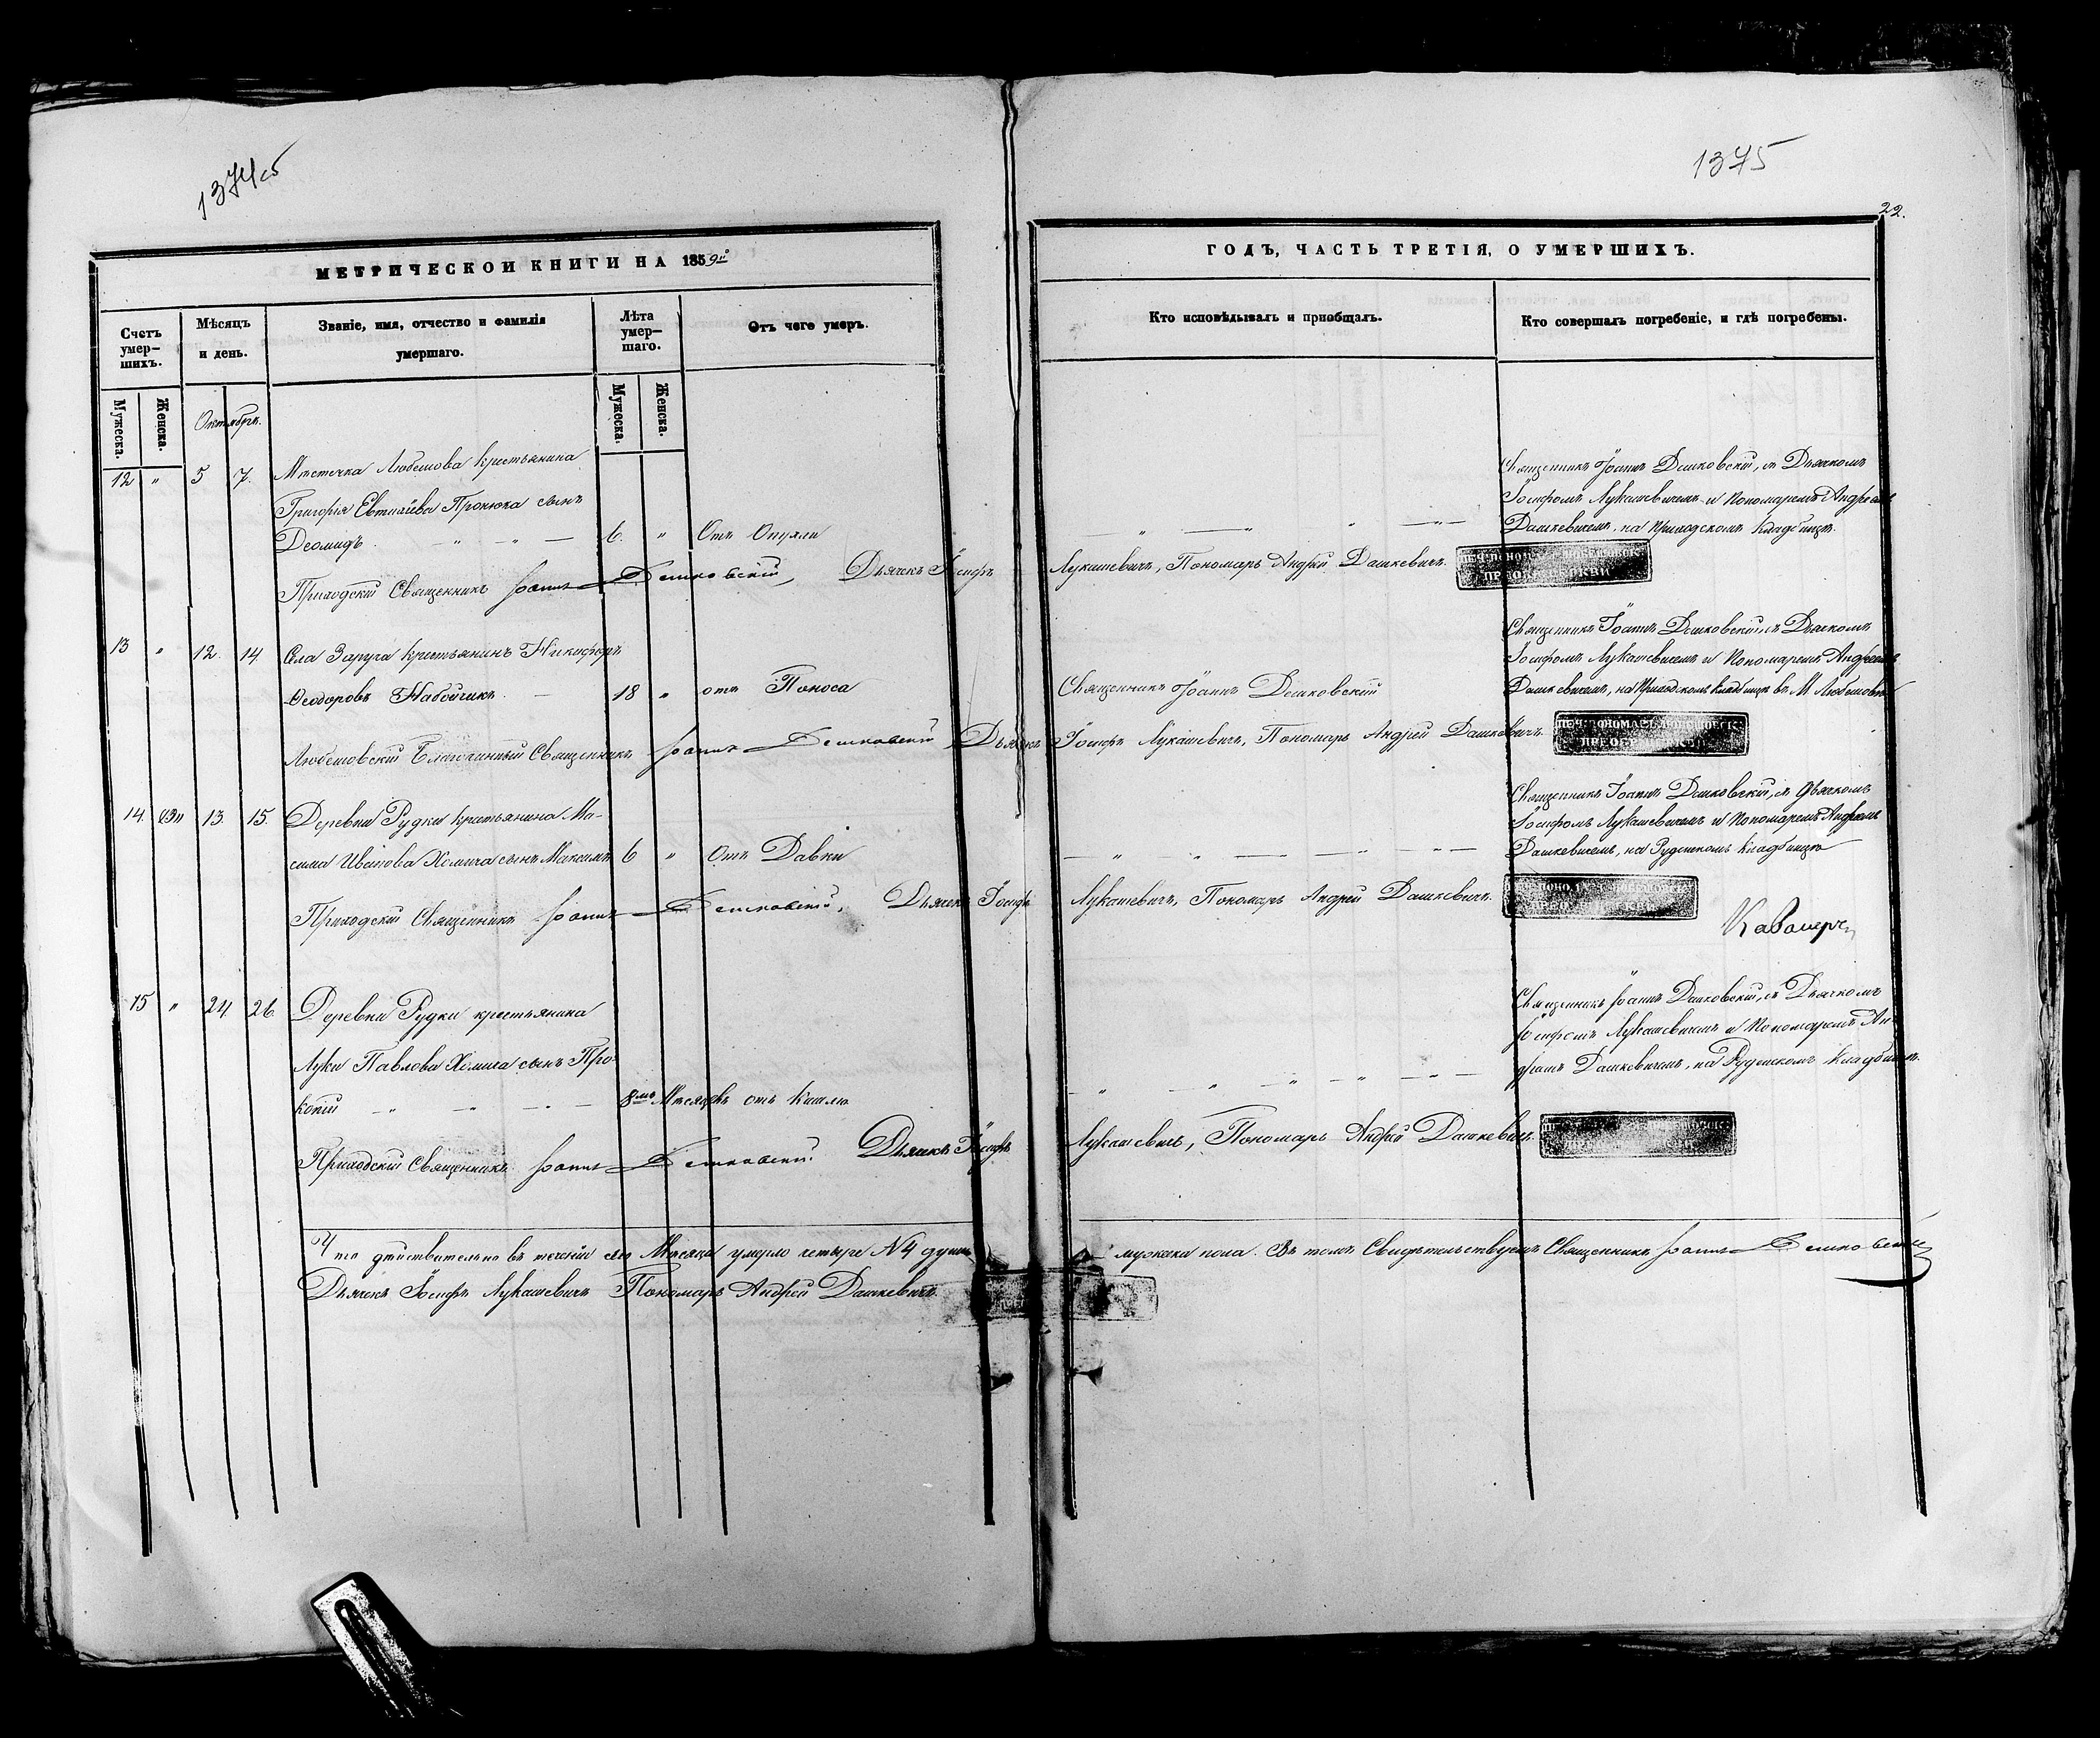 1374об
1375
22.
МЕТРИЧЕСКОЙ КНИГИ НА 1859й
ГОДЪ, ЧАСТЬ ТРЕТІЯ, О УМЕРШИХЪ.
Счетъ умер-шихъ.
Мѣсяцъ и день.
Званіе, имя, отчество и фамилія умершаго.
Лѣта умер-шаго.
Отъ чего умеръ.
Кто исповѣдывалъ и пріобщалъ.
Кто совершалъ погребеніе, и гдѣ погребены.
Мужеска.
Женска.
Октябрь.
Мужеска.
Женска.
12 " 5 7. Мѣстечка Любешова крестьянина
Григорія Евтихіева Пронюка сынъ
Деомидъ 6. " Отъ Опухли
Священникъ Іоаннъ Дешковскій, съ Дьячкомъ
Іосифомъ Лукашевичемъ и Пономаремъ Андреемъ
Дашкевичемъ, на Приходскомъ кладбищѣ.
Приходскій Священникъ Іоаннъ Дешковскій, Дьячекъ Іосифъ Лукашевичъ, Пономарь Андрей Дашкевичъ.
13 " 12. 14. Села Заруга крестьянинъ Никифоръ
Ѳеодоровъ Набойчикъ 18 " отъ Поноса
Священникъ Іоаннъ Дешковскій
Священникъ Іоаннъ Дешковскій, съ Дьячкомъ
Іосифомъ Лукашевичемъ и Пономаремъ Андреемъ
Дашкевичемъ, на Приходскомъ кладбищѣ въ М. Любешовѣ
Любешовскій Благочинный Священникъ Іоаннъ Дешковскій, Дьячекъ Іосифъ Лукашевичъ, Пономарь Андрей Дашкевичъ.
14. 13. 15. Деревни Рудки крестьянина Ма-
сима Иванова Хомича сынъ Максимъ 6 " Отъ Давки
Священникъ Іоаннъ Дешковскій, съ Дьячкомъ
Іосифомъ Лукашевичемъ и Пономаремъ Андреемъ
Дашкевичемъ, на Рудскомъ кладбищѣ
Приходскій Священникъ Іоаннъ Дешковскій, Дьячекъ Іосифъ Лукашевичъ, Пономарь Андрей Дашкевичъ.
15 " 24. 26. Деревни Рудки крестьянина
Луки Павлова Хомича сынъ Про-
копій 8мь Мѣсяцевъ отъ Кашлю
Священникъ Іоаннъ Дешковскій, съ Дьячкомъ
Іосифомъ Лукашевичемъ и Пономаремъ Ан-
дреемъ Дашкевичемъ, на Рудскомъ кладбищѣ.
Приходскій Священникъ Іоаннъ Дешковскій. Дьячекъ Іосифъ Лукашевичъ, Пономарь Андрей Дашкевичъ.
Что дѣйствительно въ теченіи сего Мѣсяца умерло четыре №4 души мужеска пола. Въ томъ Свидѣтельствуемъ Священникъ Іоаннъ Дешковскій
Дьячекъ Іосифъ Лукашевичъ Пономарь Андрей Дашкевичъ